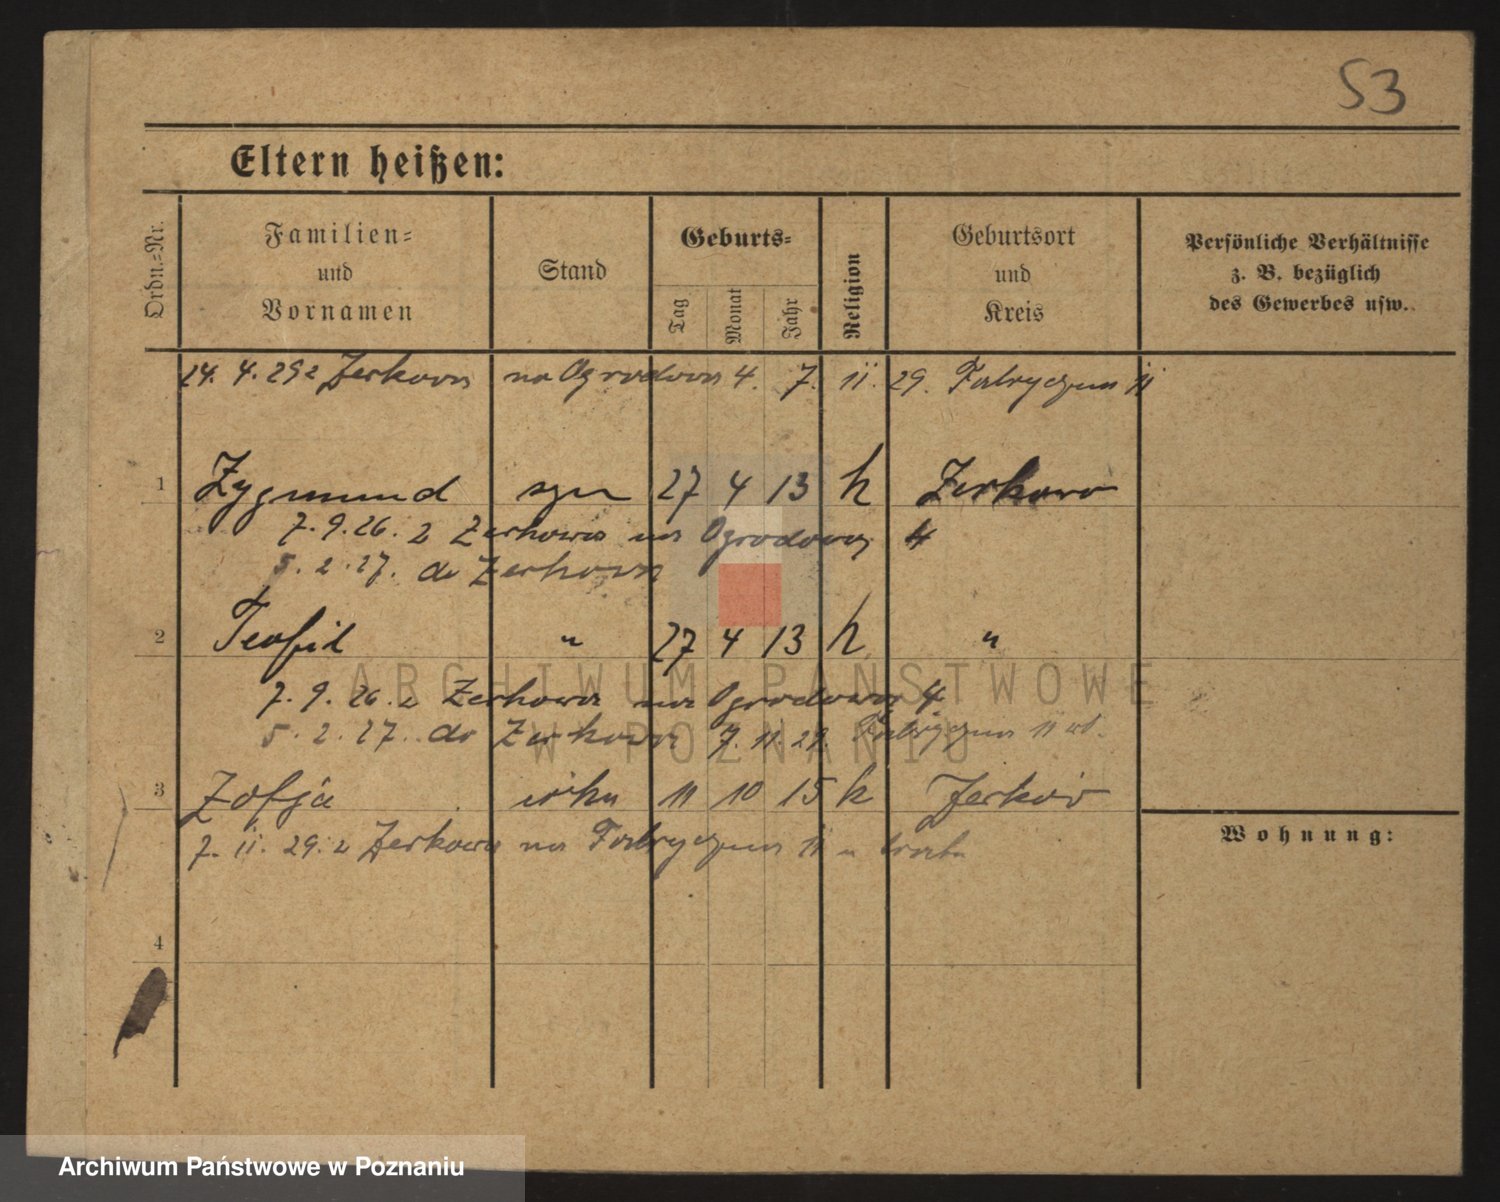 53
Eltern heißen:
Ordn.-Nr.
Familien- und Vornamen
Stand
Geburts-
Tag
Monat
Jahr
Religion
Geburtsort und Kreis
Persönliche Verhältnisse z. B. bezüglich des Gewerbes usw.
14. 4. 29 z Żerkowa na Ogrodowa 4. 7. 11. 29. Fabryczna 11
1 Zygmund syn 27 4 13 k Żerkowo
7. 9. 26. z Zerkowa na Ogrodowa 4
5. 2. 27. do Zerkowa
2 Teofil " 27 4 13 k "
7. 9. 26 z Zerkowa na Ogrodowa 4
5. 2. 27. do Zerkowa 7. 11 29. Fabryczna 11
3 Zofja 11 10 15 k Żerków
7. 11. 29. z Żerkowa na Fabryczna 11 u brata
Wohnung:
4
ARCHIWUM PAŃSTWOWE
W POZNANIU
Archiwum Państwowe w Poznaniu